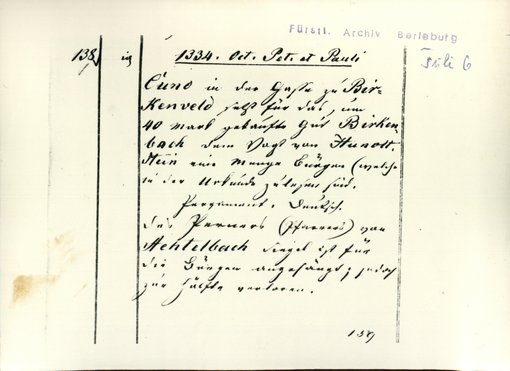 Fürstl. Archiv Berleburg
138 1334. Oct. Pet. et Pauli
Cuno in der Gasse zu Bir-
Kenveld setzt für das, um
40 Mark gekaufte Gut Birken-
bach dem Vogt von Hunolt-
stein eine Menge Bürgen (welche
in der Urkunde zu lesen sind.
Pergament. Deutsch.
des Perners (Pfarrers) von
Achtelbach Siegel ist für
die Bürgen angehängt; jedoch
zur Hälfte verloren.
139